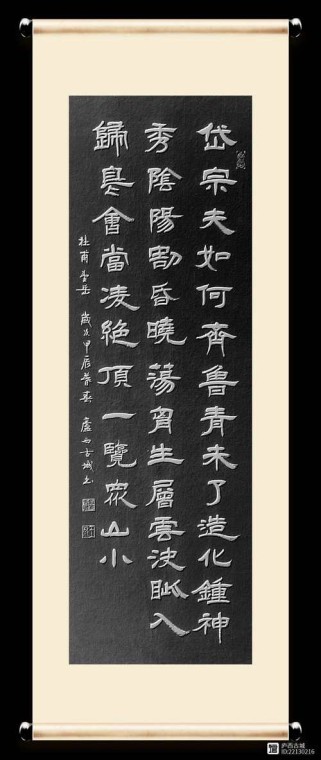 岱宗夫如何齊魯青未了造化鍾神
秀陰陽割昏曉蕩胷生層雲決眦入
歸鳥會當凌絕頂一覽眾山小
杜甫望岳 歲次甲辰暮春 廬西古城書
庐西古城
ID:22130216